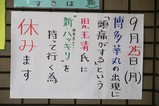 9月25日(月)
博多華丸の出現に
「頭痛がする」という
児玉清氏に
"新バッキリ"を
持って行く為
休みます